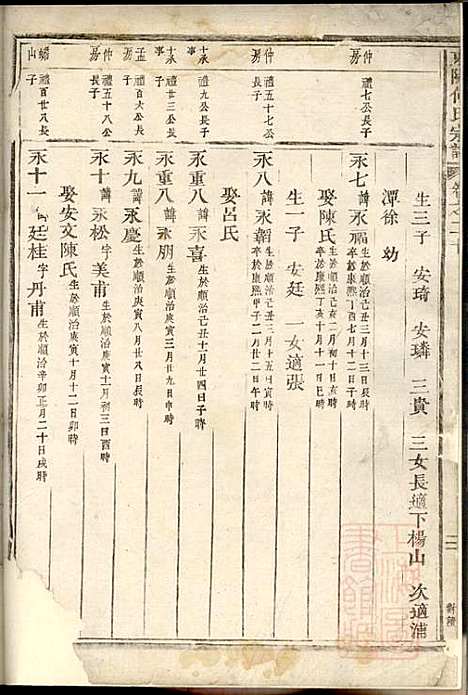 東陽何氏宗譜
卷之二十
生三子 安琦 安璘 三貴 三女長適下楊山 次適浦
潭徐 幼
仲房
禮七公長子
永七 諱永福 生於順治己丑三月十三日長時 卒於康熙丁酉七月十二日子時
娶陳氏 生於順治己亥二月初十日亥時 卒於康熙丁亥十月十一日巳時
生一子 安廷 一女適張
仲房
禮五十七公長子
永八 諱永韜 生於順治己丑三月十五日寅時 卒於康熙甲子二月廿二日午時
娶呂氏
十承
禮九公長子
永重八 諱永喜 生於順治己丑十一月廿四日子時
十承
禮廿三公長子
永重八 諱永朋 生於順治庚寅三月廿九日申時
孟房
禮百六公長子
永九 諱永慶 生於順治庚寅八月廿八日長時
仲房
禮五十八公長子
永十 諱永松 字美甫 生於順治庚寅十一月初三日酉時
娶安文陳氏 生於順治庚寅十月十二日卯時
蟠山
禮百廿八長子
永十一 諱廷桂 字丹甫 生於順治辛卯正月二十日戌時